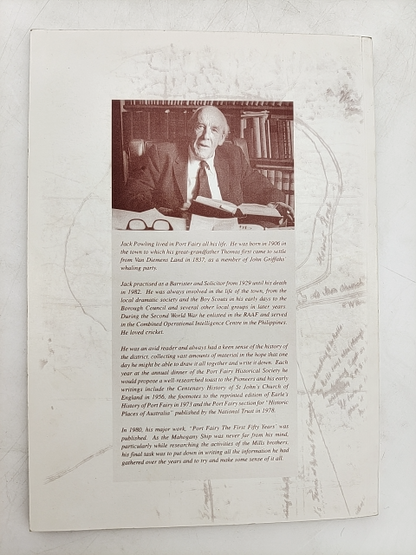 Jack Powling lived in Port Fairy all his life. He was born in 1906 in
the town to which his great-grandfather Thomas first came to settle
from Van Diemens Land in 1837, as a member of John Griffiths'
whaling party.
Jack practised as a Barrister and Solicitor from 1929 until his death
in 1982. He was always involved in the life of the town, from the
local dramatic society and the Boy Scouts in his early days to the
Borough Council and several other local groups in later years.
During the Second World War he enlisted in the RAAF and served
in the Combined Operational Intelligence Centre in the Philippines.
He loved cricket.
He was an avid reader and always had a keen sense of the history of
the district, collecting vast amounts of material in the hope that one
day he might be able to draw it all together and write it down. Each
year at the annual dinner of the Port Fairy Historical Society he
would propose a well-researched toast to the Pioneers and his early
writings include the Centenary History of St John's Church of
England in 1956, the footnotes to the reprinted edition of Earle's
History of Port Fairy in 1973 and the Port Fairy section for "Historic
Places of Australia" published by the National Trust in 1978.
In 1980, his major work, "Port Fairy The First Fifty Years" was
published. As the Mahogany Ship was never far from his mind,
particularly while researching the activities of the Mills brothers,
his final task was to put down in writing all the information he had
gathered over the years and to try and make some sense of it all.